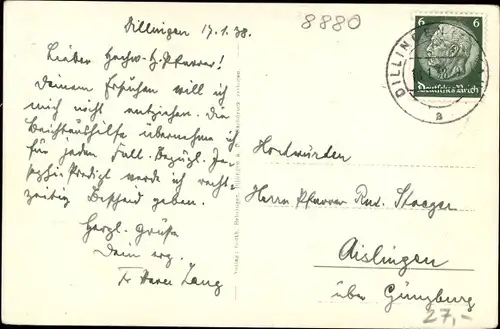 Dillingen 17.1.38.
8880
Lieber Hochw. H. Pfarrer!
Deinem Ersuchen will ich
mich nicht entziehen. Die
Beichtaushilfe übernehme ich
für jeden Fall. Bezügl. Jo-
sephs-Predigt werde ich recht-
zeitig Bescheid geben.
Herzl. Grüße
Dein erg.
Fr. Xaver Lang
6 6
Deutsches Reich
DILLINGEN
a
Hochwürden
Herrn Pfarrer Rud. Stoeger
Aislingen
über Günzburg
27,-